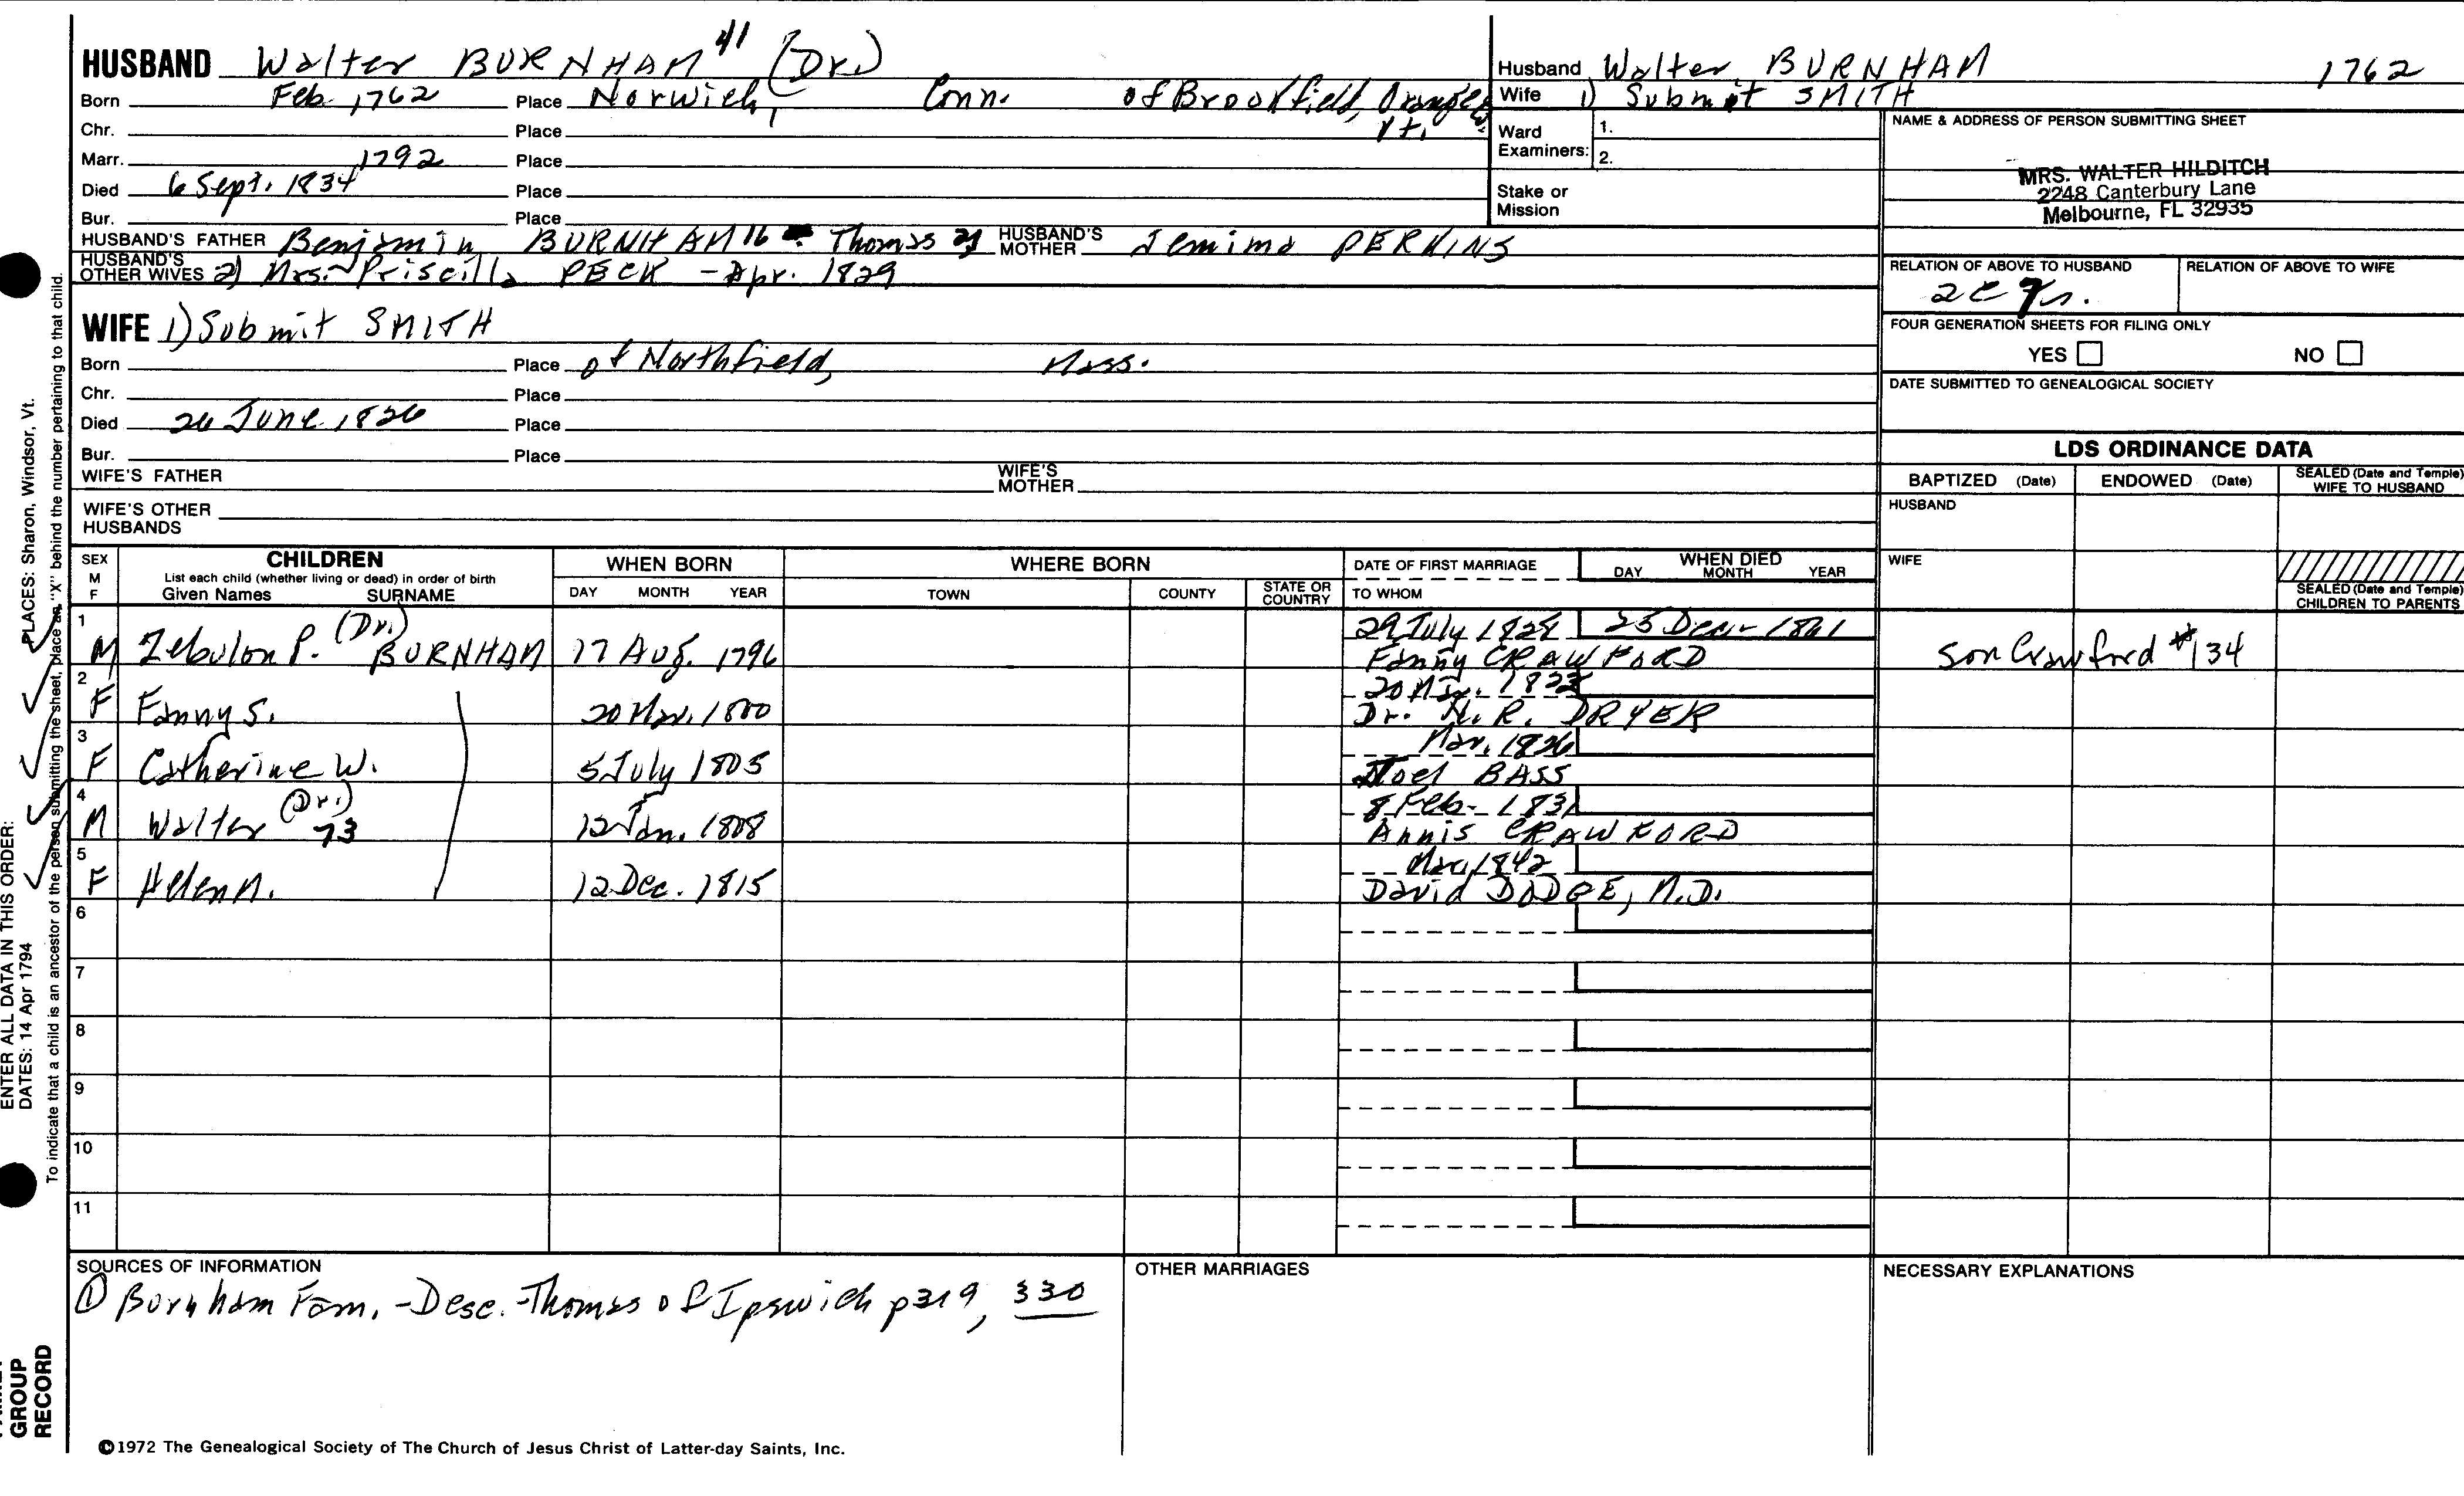 HUSBAND Walter BURNHAM 41 (Dr.)
Born Feb. 1762 Place Norwich, Conn. of Brookfield, Orange, Vt.
Chr. Place
Marr. 1792 Place
Died 6 Sept. 1834 Place
Bur. Place
HUSBAND'S FATHER Benjamin BURNHAM 16 Thomas HUSBAND'S MOTHER Jemima PERKINS
HUSBAND'S OTHER WIVES 2) Mrs. Priscilla PECK - Apr. 1829
WIFE 1) Submit SMITH
Born Place of Northfield, Mass.
Chr. Place
Died 26 June 1826 Place
Bur. Place
WIFE'S FATHER WIFE'S MOTHER
WIFE'S OTHER HUSBANDS
Husband Walter BURNHAM 1762
Wife 1) Submit SMITH
Ward Examiners: 1.
2.
Stake or Mission
NAME & ADDRESS OF PERSON SUBMITTING SHEET
MRS. WALTER HILDITCH
2248 Canterbury Lane
Melbourne, FL 32935
RELATION OF ABOVE TO HUSBAND RELATION OF ABOVE TO WIFE
2c
FOUR GENERATION SHEETS FOR FILING ONLY
YES NO
DATE SUBMITTED TO GENEALOGICAL SOCIETY
LDS ORDINANCE DATA
BAPTIZED (Date) ENDOWED (Date) SEALED (Date and Temple) WIFE TO HUSBAND
HUSBAND
WIFE
SEALED (Date and Temple) CHILDREN TO PARENTS
SEX M F
CHILDREN
List each child (whether living or dead) in order of birth
Given Names SURNAME
WHEN BORN
DAY MONTH YEAR
WHERE BORN
TOWN COUNTY STATE OR COUNTRY
DATE OF FIRST MARRIAGE
TO WHOM
WHEN DIED
DAY MONTH YEAR
1 29 July 25 Dec.
M Zebulon P. (Dr.) BURNHAM 17 Aug. 1796 Fanny CRAWFORD son Crawford #134
2
F Fanny S. 20 Mar. 1800 Dr. H. R. DRYER
3 Mar. 1826
F Catherine W. 5 July 1805 Joel BASS
4 8 Feb. 1831
M Walter (Dr.) 73 12 Jan. 1808 Annis CRAWFORD
5 1842
F Helen M. 12 Dec. 1815 David DODGE, M.D.
6
7
8
9
10
11
SOURCES OF INFORMATION
① Burnham Fam. - Desc. - Thomas of Ipswich p319, 330
OTHER MARRIAGES
NECESSARY EXPLANATIONS
©1972 The Genealogical Society of The Church of Jesus Christ of Latter-day Saints, Inc.
GROUP
RECORD
ENTER ALL DATA IN THIS ORDER:
DATES: 14 Apr 1794 PLACES: Sharon, Windsor, Vt.
To indicate that a child is an ancestor of the person submitting the sheet, place an "X" behind the number pertaining to that child.